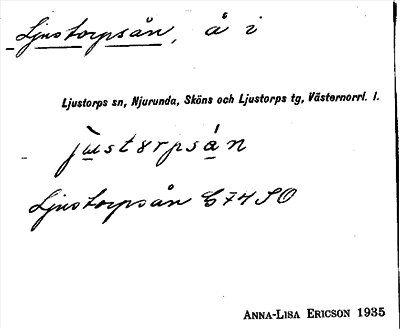 Ljustorpsån, å i
Ljustorps sn, Njurunda, Sköns och Ljustorps tg, Västernorrl. l.
Ljustorpsån G74 SO
ANNA-LISA ERICSON 1935